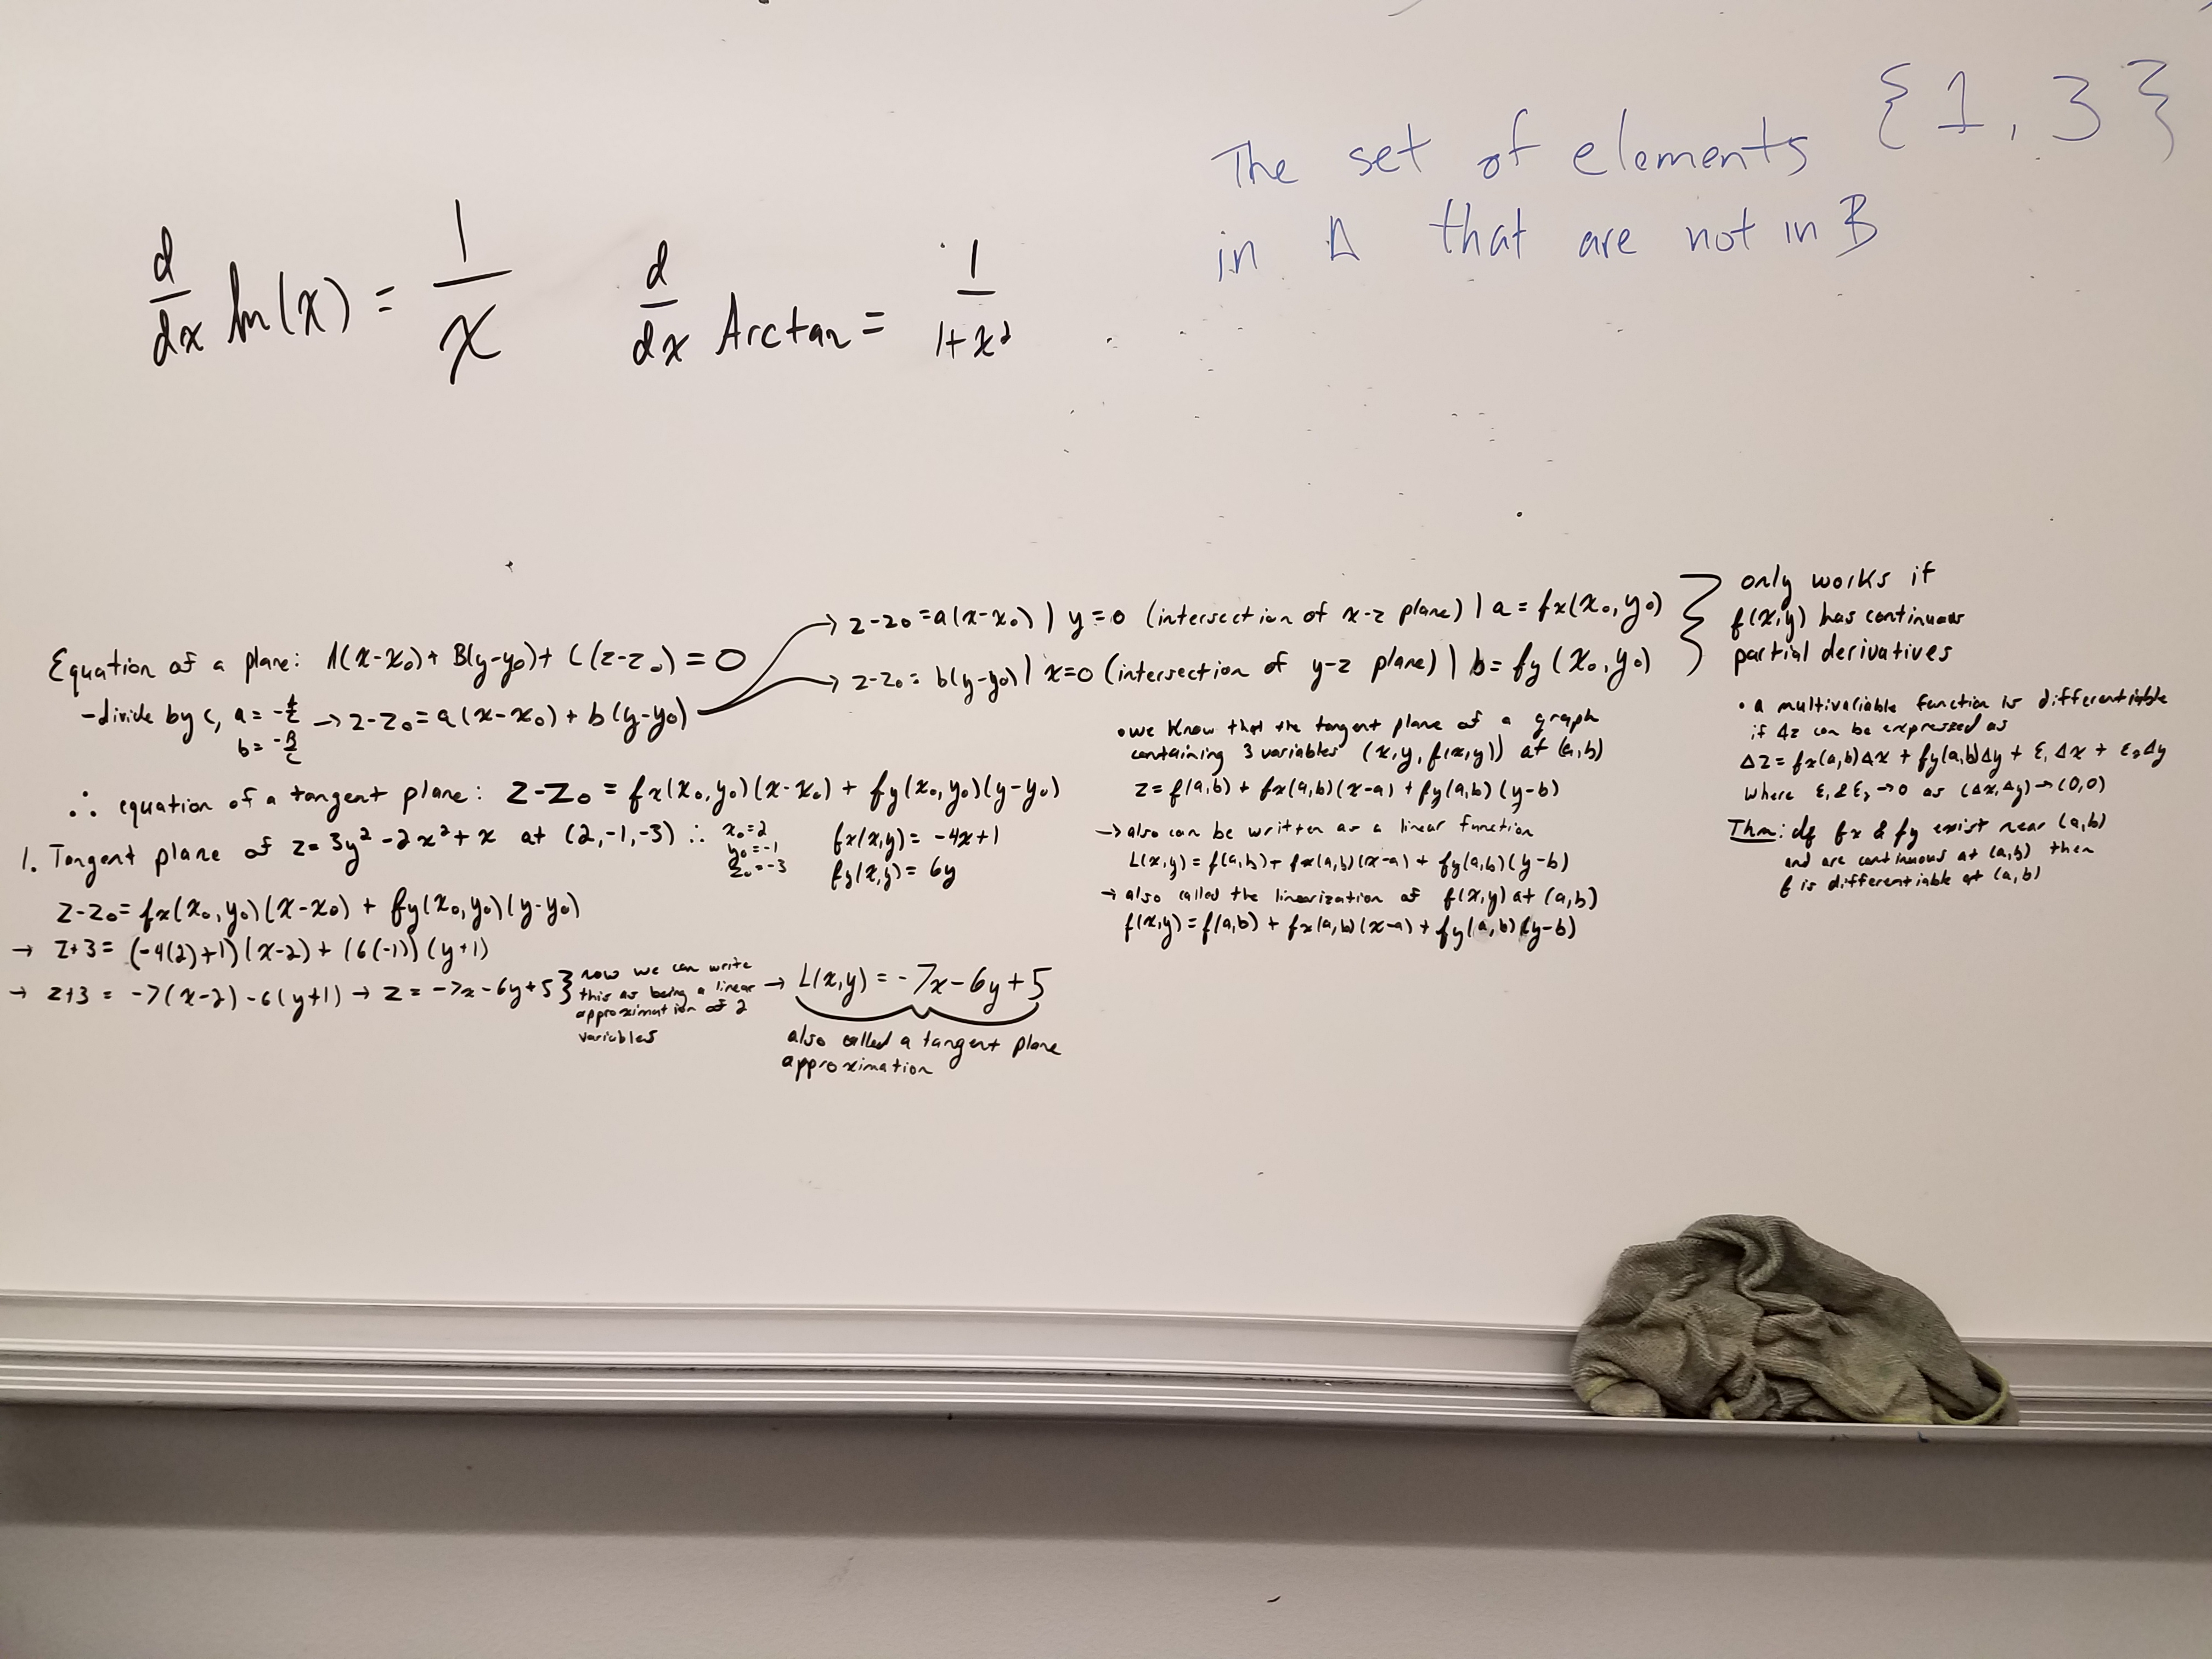 The set of elements {1, 3}
in A that are not in B
d/dx ln(x) = 1/x
d/dx Arctan = 1/1+x²
Equation of a plane: A(x-x₀)+ B(y-y₀)+ C(z-z₀) = 0
-divide by c, a = -A/C → z-z₀ = a(x-x₀) + b(y-y₀)
b = -B/C
z-z₀ = a(x-x₀) | y=0 (intersection of x-z plane) | a = fx(x₀,y₀)
z-z₀ = b(y-y₀) | x=0 (intersection of y-z plane) | b = fy(x₀,y₀)
only works if
f(x,y) has continuous
partial derivatives
∴ equation of a tangent plane: z-z₀ = fx(x₀,y₀)(x-x₀) + fy(x₀,y₀)(y-y₀)
1. Tangent plane of z=3y²-2x²+x at (2,-1,-3) ∴
x₀=2
y₀=-1
z₀=-3
fx(x,y) = -4x+1
fy(x,y) = 6y
z-z₀ = fx(x₀,y₀)(x-x₀) + fy(x₀,y₀)(y-y₀)
→ z+3 = (-4(2)+1)(x-2) + (6(-1))(y+1)
→ z+3 = -7(x-2)-6(y+1) → z = -7x-6y+5
now we can write
this as being a linear
approximation of 2
variables
→ L(x,y) = -7x-6y+5
also called a tangent plane
approximation
•we know that the tangent plane of a graph
containing 3 variables (x,y,f(x,y)) at (a,b)
z = f(a,b) + fx(a,b)(x-a) + fy(a,b)(y-b)
→ also can be written as a linear function
L(x,y) = f(a,b) + fx(a,b)(x-a) + fy(a,b)(y-b)
→ also called the linearization of f(x,y) at (a,b)
f(x,y) = f(a,b) + fx(a,b)(x-a) + fy(a,b)(y-b)
• a multivariable function is differentiable
if Δz can be expressed as
Δz = fx(a,b)Δx + fy(a,b)Δy + ε₁Δx + ε₂Δy
where ε₁ & ε₂ → 0 as (Δx,Δy) → (0,0)
Thm: If fx & fy exist near (a,b)
and are continuous at (a,b) then
f is differentiable at (a,b)